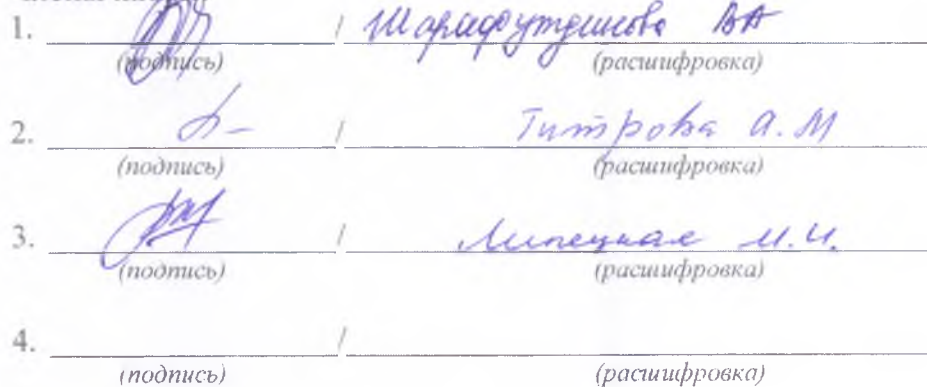 1. / Шарифутдинова ВА
(подпись) (расшифровка)
2. / Титрова А.М
(подпись) (расшифровка)
3. / Липецкая И.И.
(подпись) (расшифровка)
4. /
(подпись) (расшифровка)